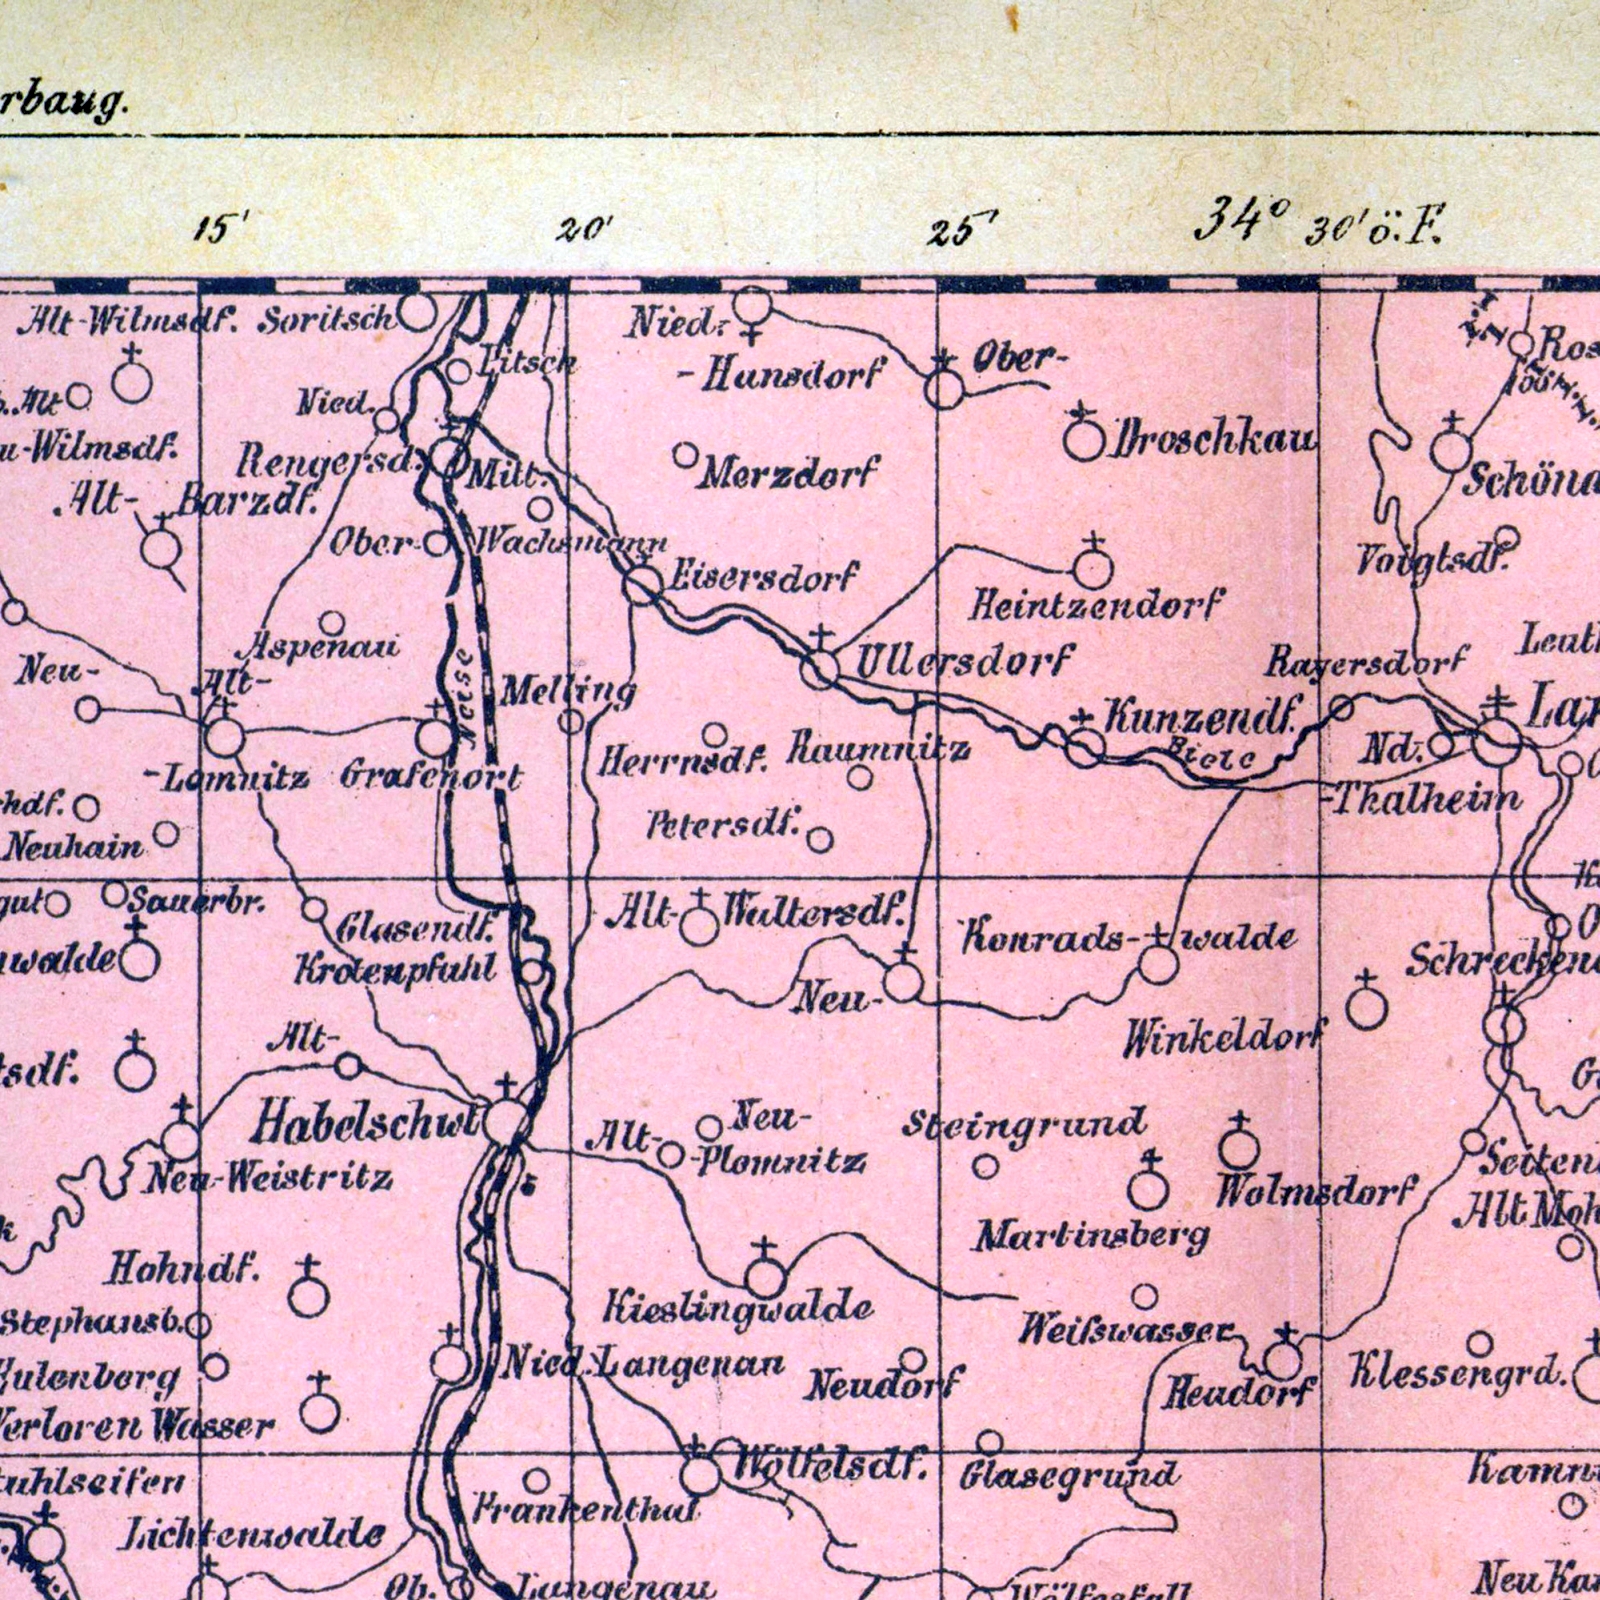 rbaug.
15' 20' 25' 34° 30' ö. F.
Alt-Wilmsdf. Soritsch
Nied.-
-Hansdorf
Ober-
Pitsch
Alt
Nied.
Droschkau
u-Wilmsdf.
Rengersd.
Mitt.
Merzdorf
Alt- Barzdf.
Ober
Wachsmann
Voigtsdf.
Eisersdorf
Heintzendorf
Aspenau
Ullersdorf
Rayersdorf
Neu-
Alt-
Neisse
Melling
Kunzendf.
Biele
Nd.
-Thalheim
-Lomnitz Grafenort
Herrnsdf. Raumnitz
hdf.
Neuhain
Petersdf.
gut
Sauerbr.
Glasendf.
Alt- Waltersdf.
Konrads-walde
walde
Krotenpfuhl
Neu-
Winkeldorf
Alt-
sdf.
Habelschwt
Alt-
Neu-
-Plomnitz
Steingrund
Neu-Weistritz
Wolmsdorf
Martinsberg
Hohndf.
Kieslingwalde
Stephansb.
Weifswasser
Eulenberg
Nied. Langenau
Neudorf
Heudorf
Klessengrd.
Verloren Wasser
Wölfelsdf.
Glasegrund
uhlseifen
Frankenthal
Lichtenwalde
Ob. Langenau
Wölfesfall